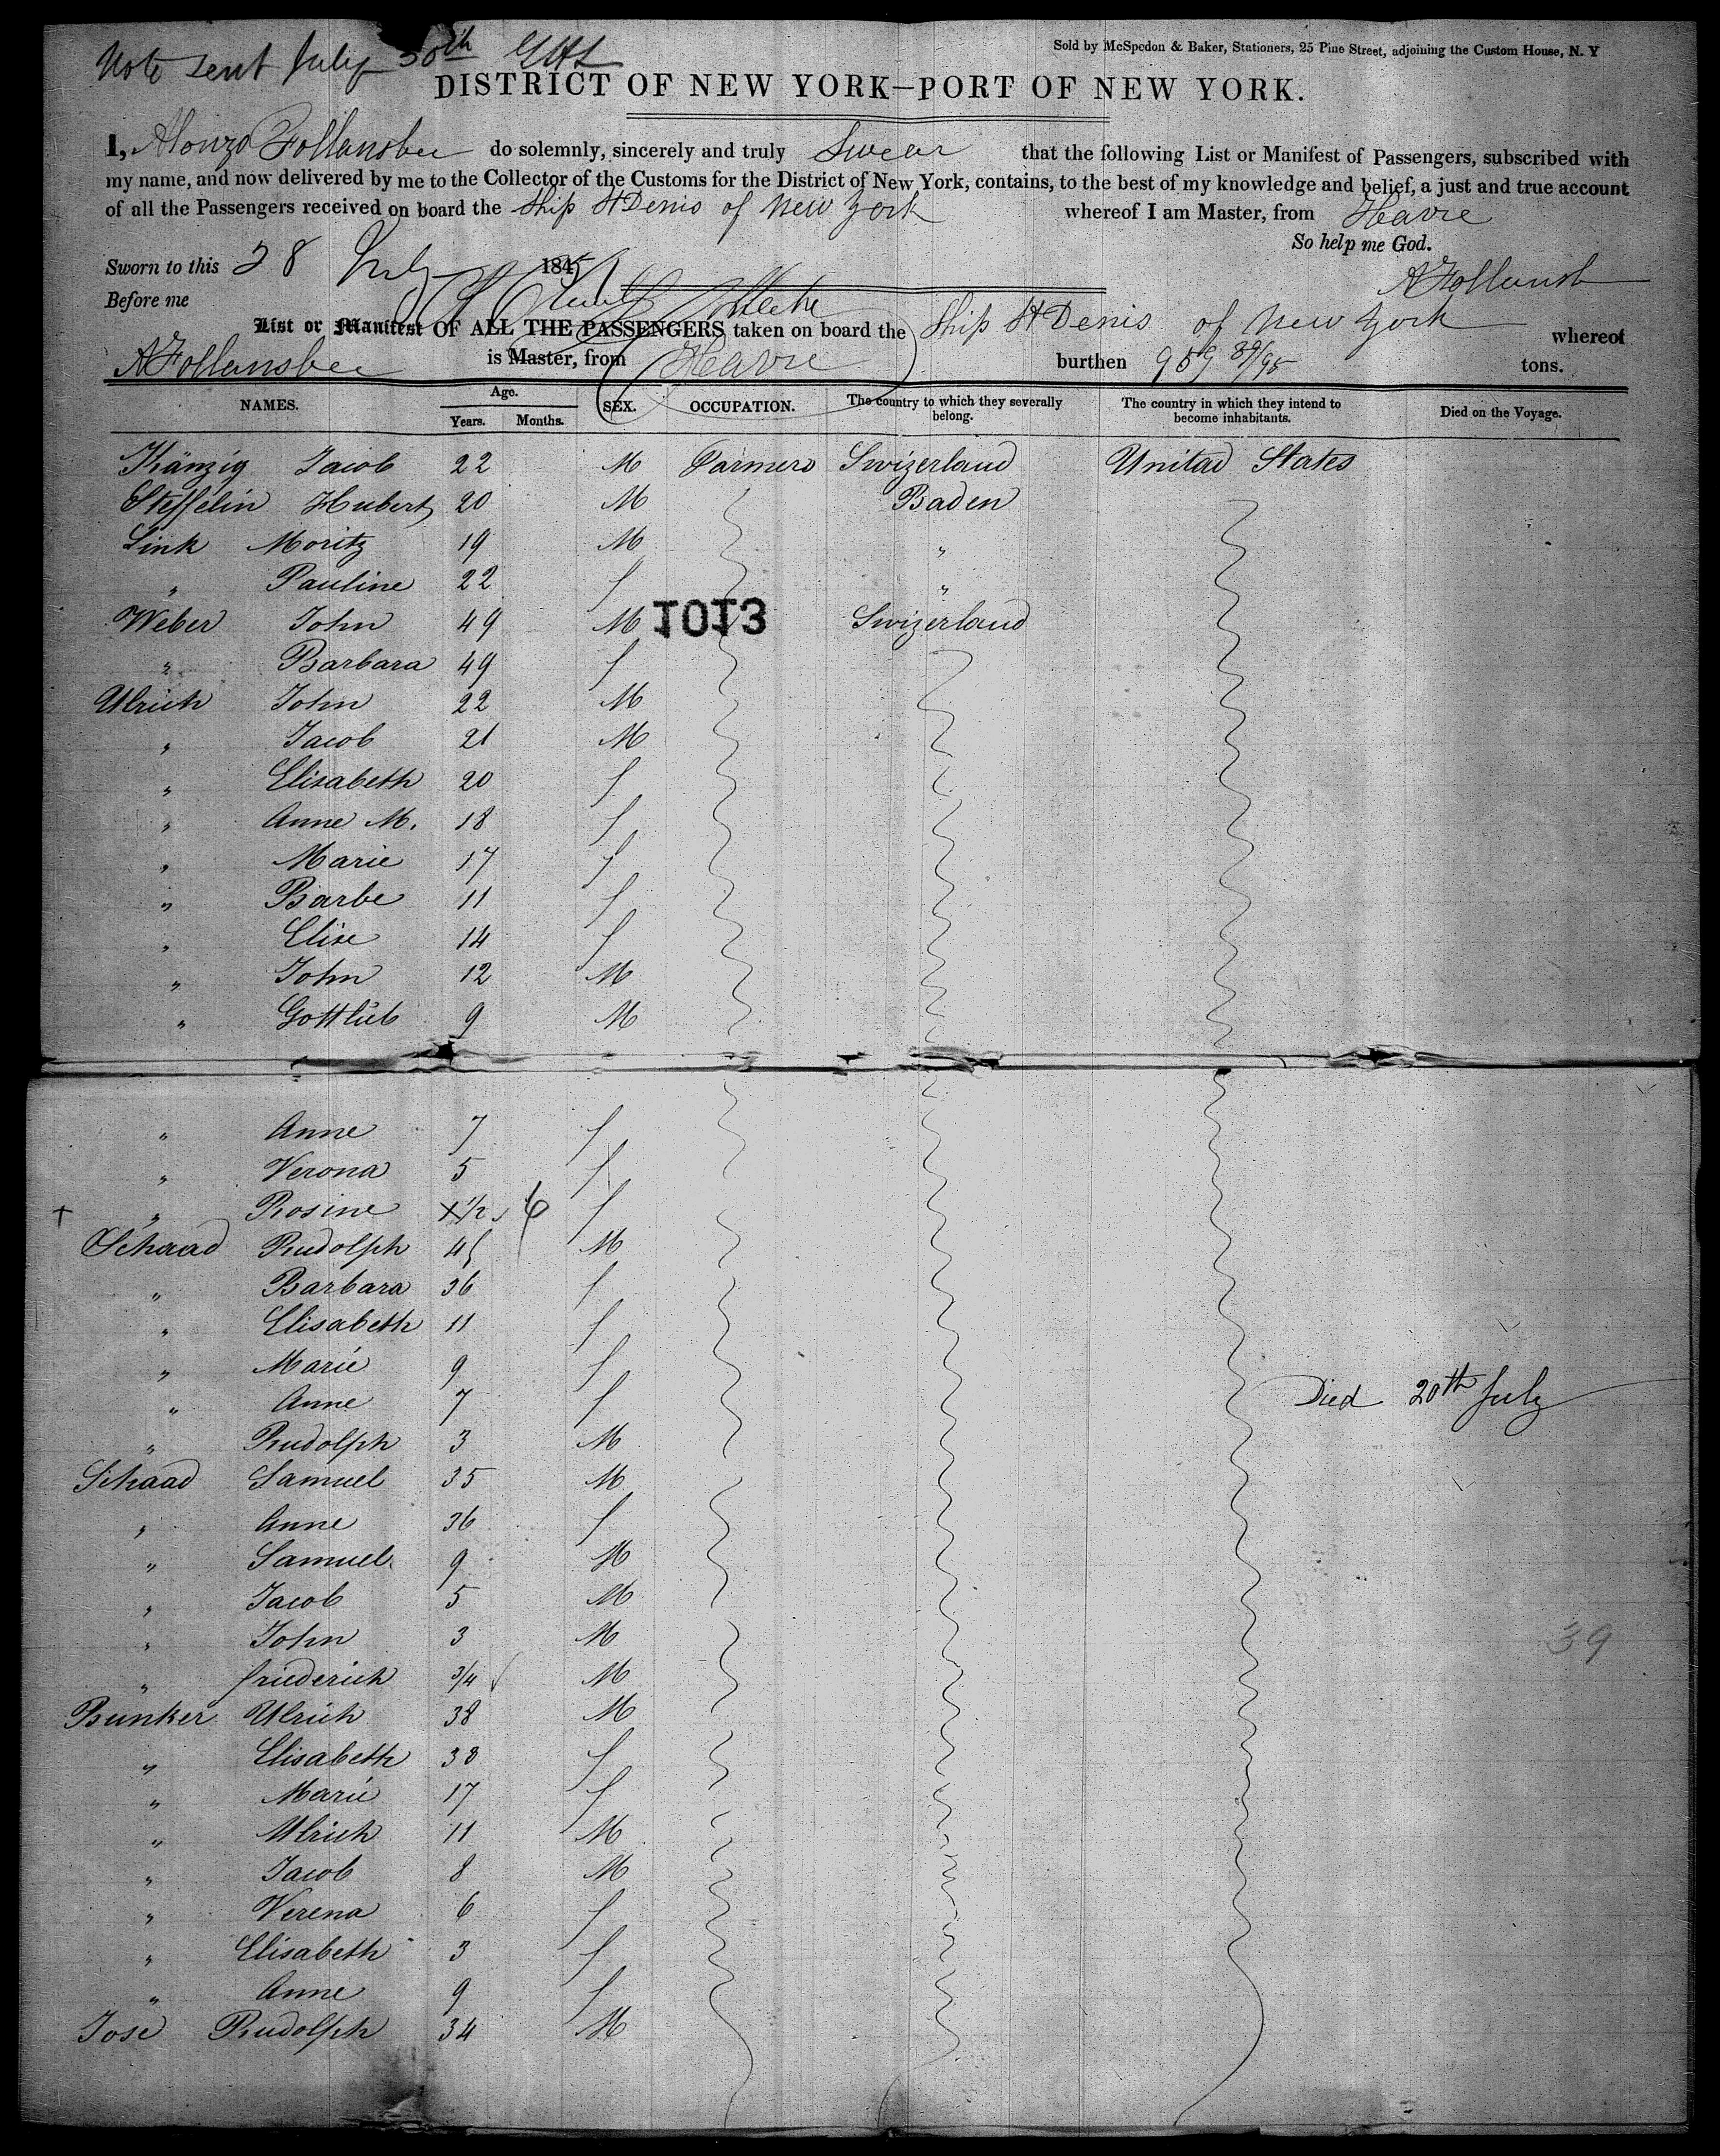 Note sent July 30th
Sold by McSpedon & Baker, Stationers, 25 Pine Street, adjoining the Custom House, N. Y
DISTRICT OF NEW YORK—PORT OF NEW YORK.
I, Alonzo Follansbee do solemnly, sincerely and truly Swear that the following List or Manifest of Passengers, subscribed with
my name, and now delivered by me to the Collector of the Customs for the District of New York, contains, to the best of my knowledge and belief, a just and true account
of all the Passengers received on board the Ship St Denis of New York whereof I am Master, from Havre
So help me God.
Sworn to this 28 July 184
A Follansb
Before me
List or Manifest OF ALL THE PASSENGERS taken on board the Ship St Denis of New York whereof
A Follansbee is Master, from Havre burthen 959 89/95 tons.
NAMES. Age. SEX. OCCUPATION. The country to which they severally belong. The country in which they intend to become inhabitants. Died on the Voyage.
Years. Months.
Känzig Jacob 22 M Farmers Swizerland Unitad States
Steffelin Hubert 20 M Baden
Link Moritz 19 M "
" Pauline 22 f "
Weber John 49 M 1013 Swizerland
" Barbara 49 f
Ulrich John 22 M
" Jacob 21 M
" Elisabeth 20 f
" Anne M. 18 f
" Marie 17 f
" Barbe 11 f
" Elise 14 f
" John 12 M
" Gottlieb 9 M
" Anne 7 f
" Verona 5 f
+ " Rosine x 1/2 6 f
Schaad Rudolph 45 M
" Barbara 36 f
" Elisabeth 11 f
" Marie 9 f
" Anne 7 f Died 20th July
" Rudolph 3 M
Schaad Samuel 35 M
" Anne 36 f
" Samuel 9 M
" Jacob 5 M
" John 3 M
39
" friederich 3/4 M
Bunker Ulrich 38 M
" Elisabeth 38 f
" Marie 17 f
" Ulrich 11 M
" Jacob 8 M
" Verena 6 f
" Elisabeth 3 f
" Anne 9 f
Jose Rudolph 34 M